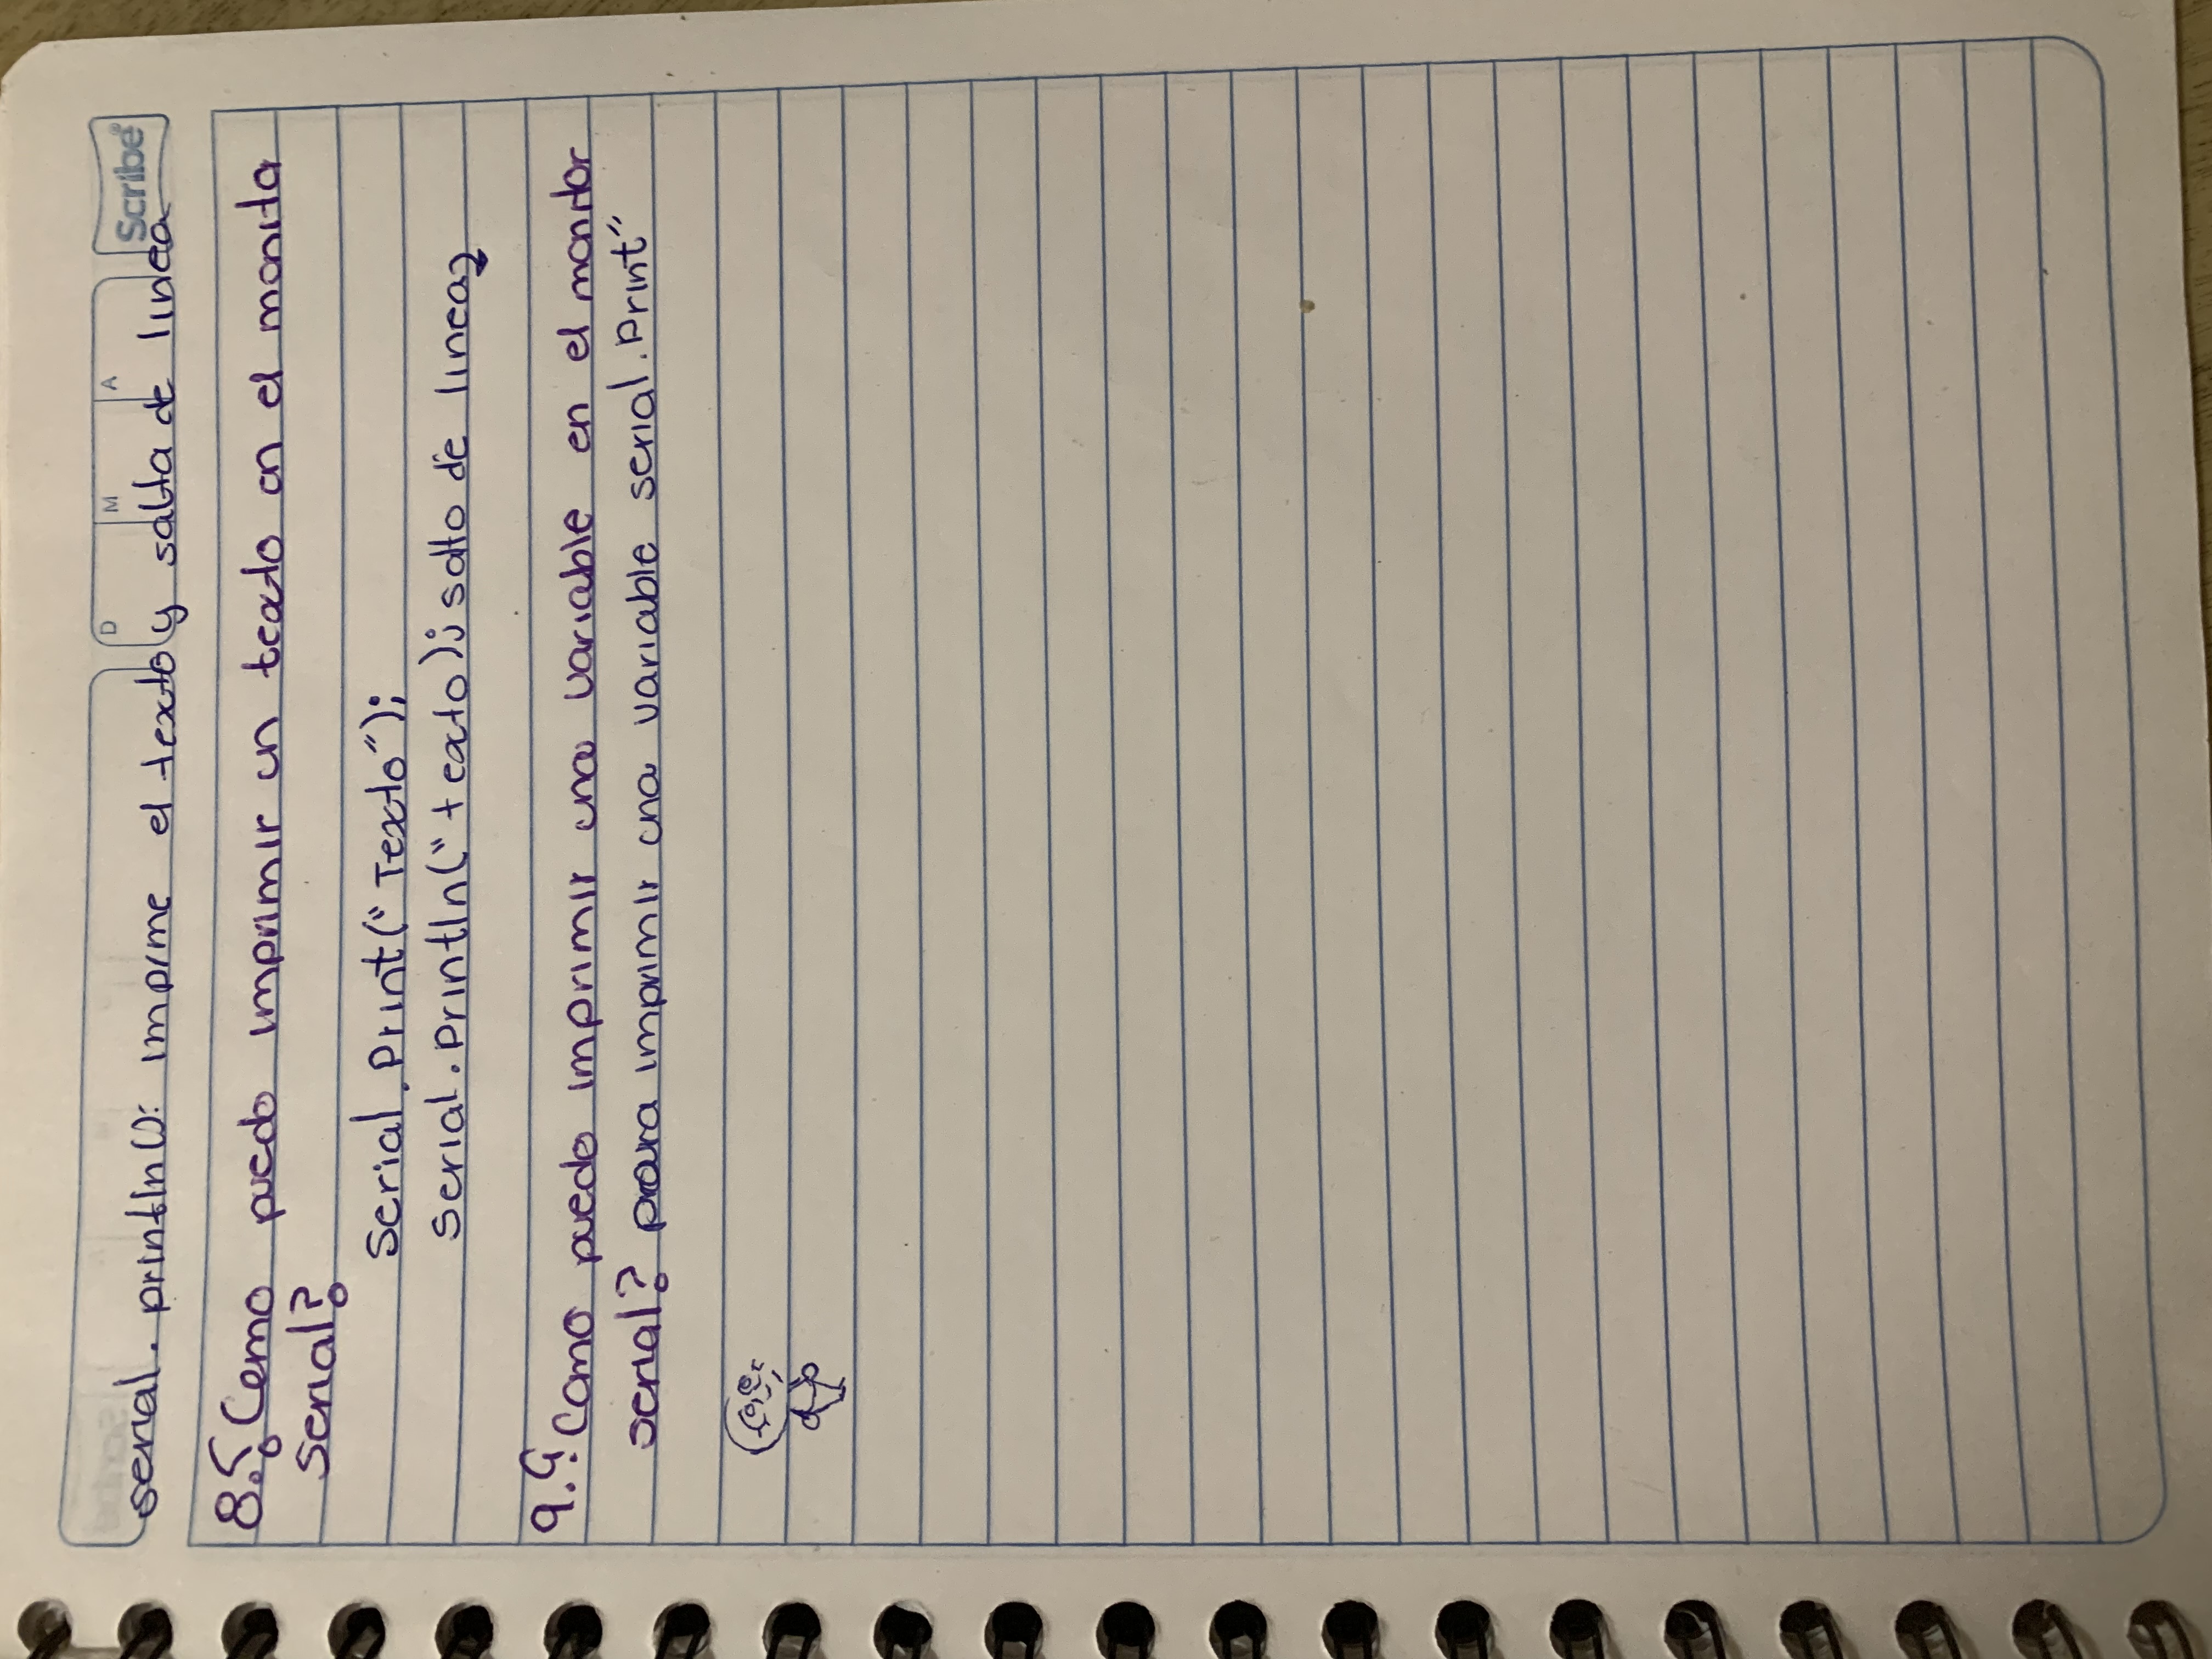 Scribe
D M A
serial. println(): imprime el texto y salta de linea
8.¿Como puedo imprimir un texto en el monito
serial?
Serial.print("Texto");
serial.println("texto); salto de linea
9.¿Como puedo imprimir una variable en el monitor
serial? para imprimir una variable serial.Print"